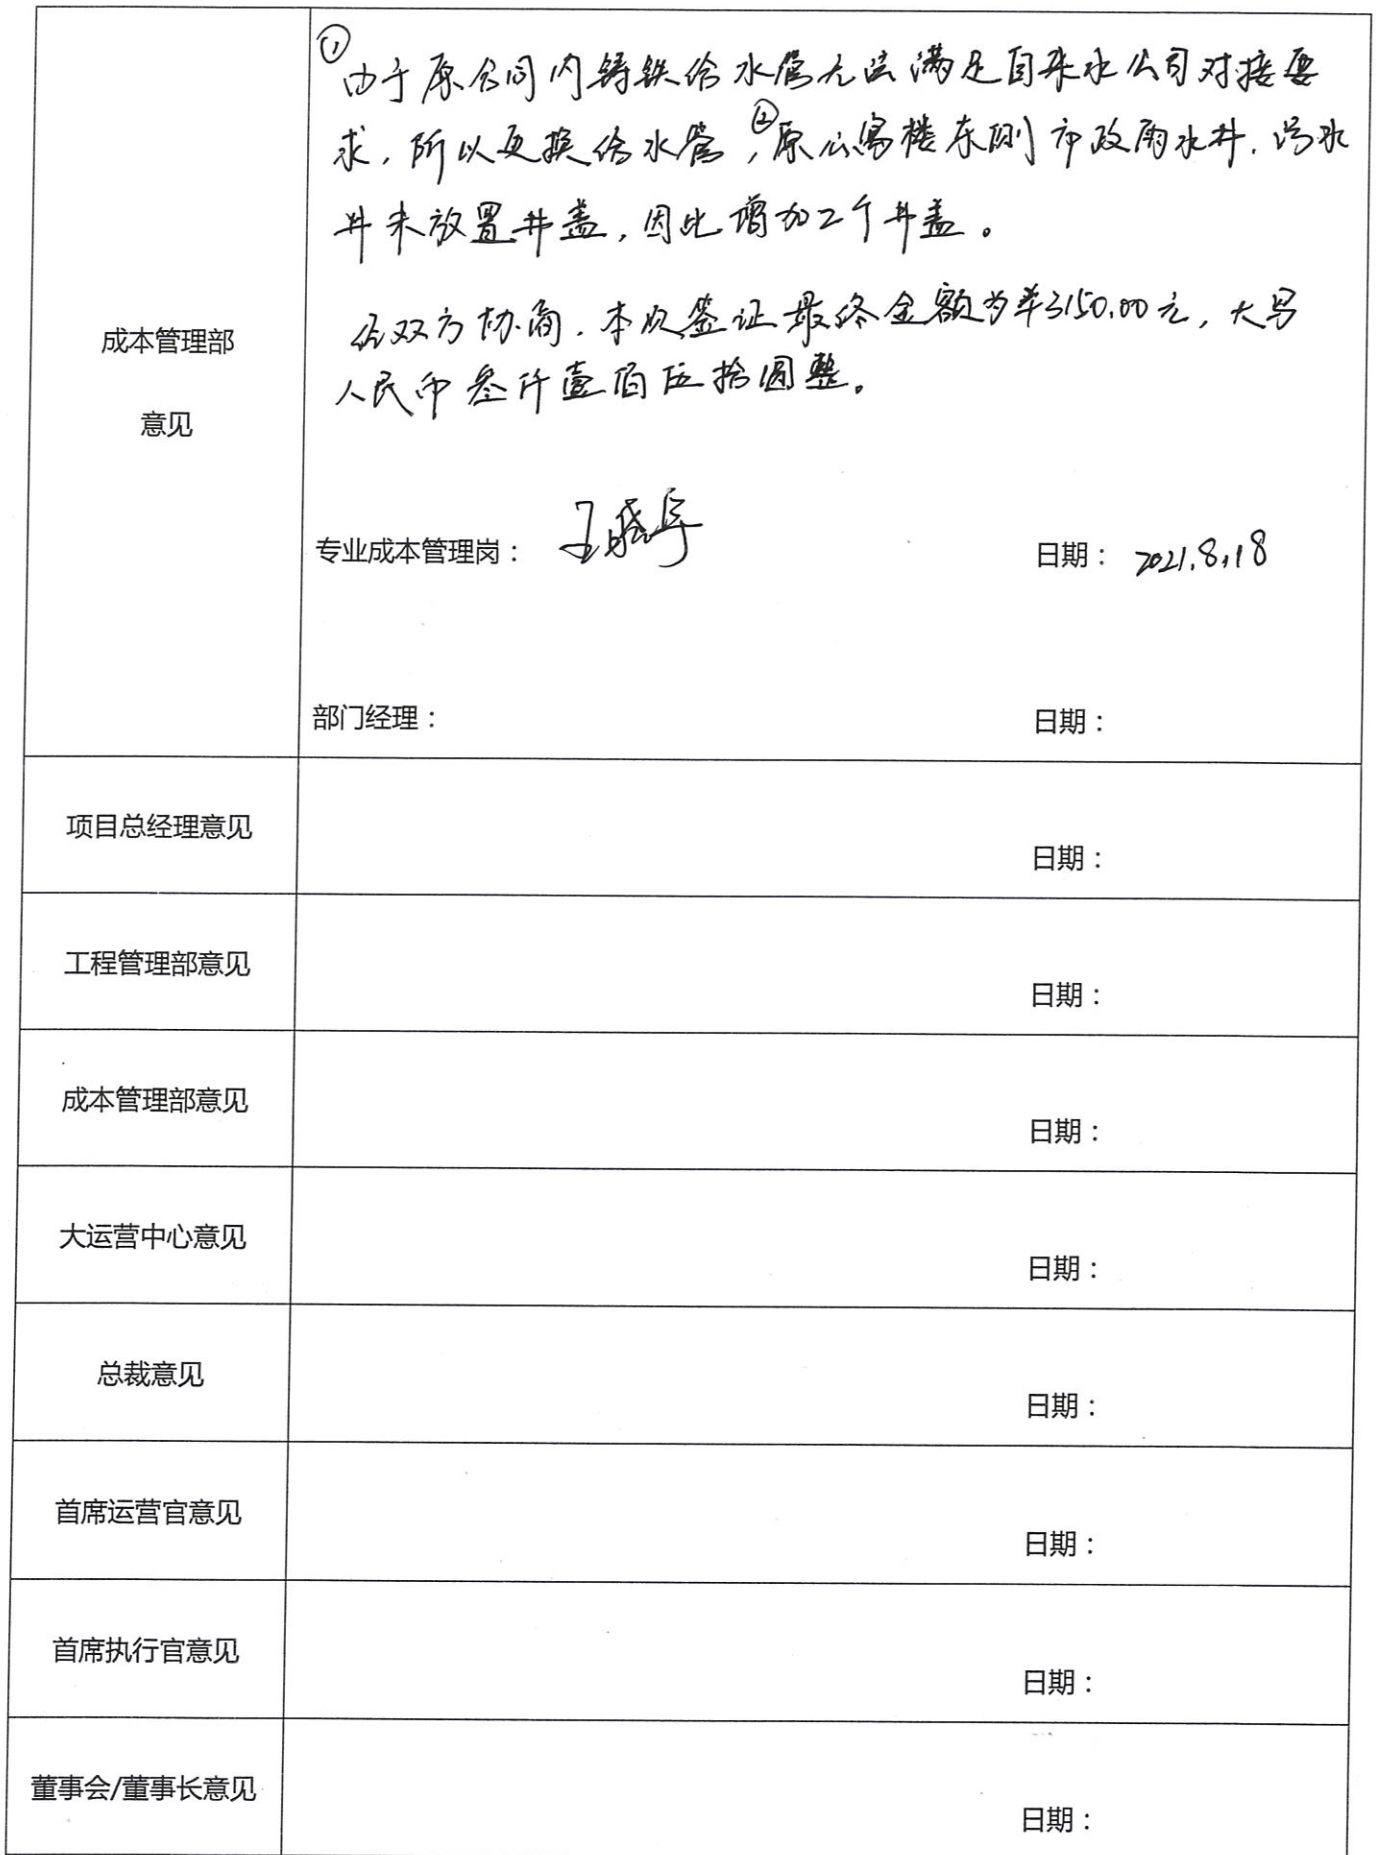 ①由于原合同内铸铁给水管无法满足自来水公司对接要
求，所以更换给水管，②原公寓楼东侧市政雨水井、污水
井未放置井盖，因此增加2个井盖。
经双方协商，本次签证最终金额为￥3150.00元，大写
人民币叁仟壹佰伍拾圆整。
成本管理部
意见
专业成本管理岗： 日期： 2021.8.18
部门经理： 日期：
项目总经理意见
日期：
工程管理部意见
日期：
成本管理部意见
日期：
大运营中心意见
日期：
总裁意见
日期：
首席运营官意见
日期：
首席执行官意见
日期：
董事会/董事长意见
日期：